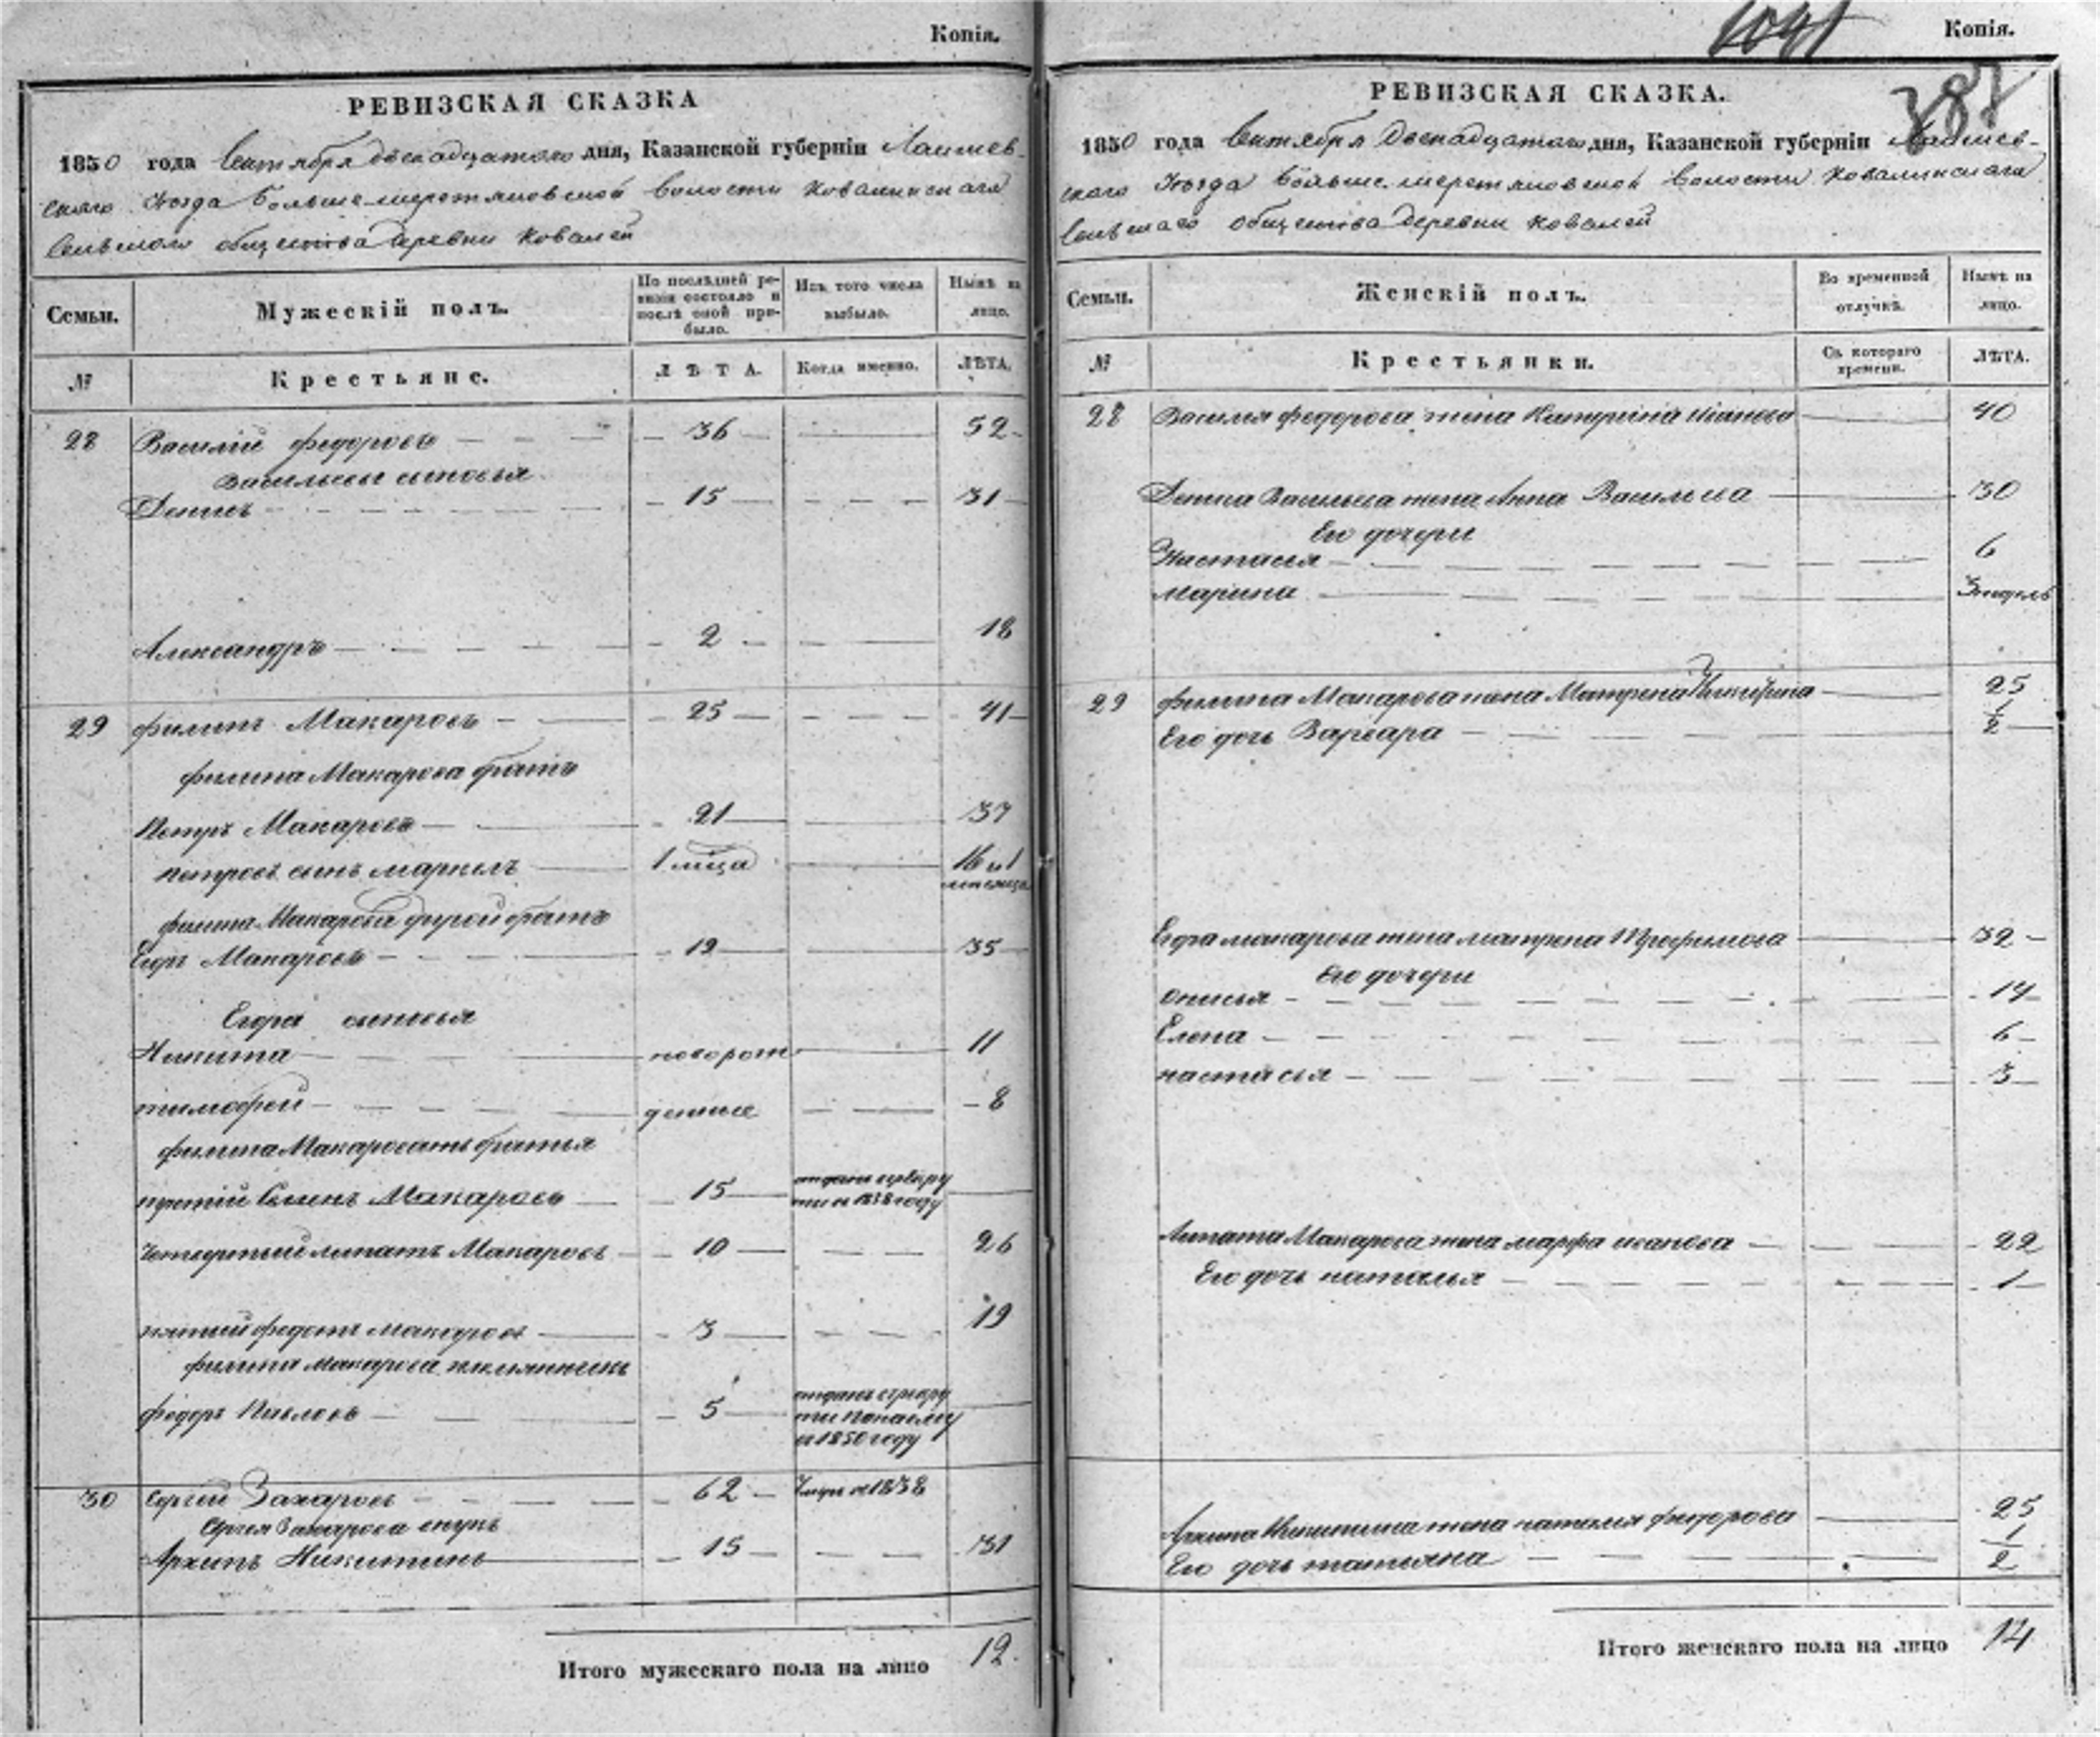 Копія.
РЕВИЗСКАЯ СКАЗКА
1850 года Сентября двенадцатого дня, Казанской губерніи Лаишев-
скаго Уезда Больше-меретяковской волости Ковалинскаго
Сельскаго общества деревни Ковалей
Семьи.
Мужескій полъ.
По послѣдней ре-
визіи состояло и
послѣ оной при-
было.
Изъ того числа
выбыло.
Нынѣ на
лицо.
№
Крестьяне.
ЛѢТА.
Когда именно.
ЛѢТА.
28 Василій Федоровъ — 36 — 52
Васильевы сыновья
Денисъ — 15 — 31
Александръ — 2 — 18
29 Филипъ Макаровъ — 25 — 41
Филипа Макарова братъ
Петръ Макаровъ — 21 — 37
Петровъ сынъ Маркелъ — 1 мца — 16 и 1
месяца
Филипа Макарова другой братъ
Егоръ Макаровъ — 19 — 35
Егора сыновья
Никита — новорож — 11
Тимофей — денные — 8
Филипа Макарова братья
третій Семенъ Макаровъ — 15 — отданъ в рекру
ты в 1838 году
Четвертый Липатъ Макаровъ — 10 — 26
пятый Федотъ Макаровъ — 3 — 19
Филипа Макарова племянникъ
Федоръ Павловъ — 5 — отданъ в рекру
ты
в 1850 году
30 Сергей Захаровъ — 62 — Умеръ в 1838
Сергея Захарова внукъ
Архипъ Никитинъ — 15 — 31
Итого мужескаго пола на лицо 12.
Копія.
387
РЕВИЗСКАЯ СКАЗКА.
1850 года Сентября Двенадцатого дня, Казанской губерніи Лаишев-
скаго Уезда Больше-меретяковской волости Ковалинскаго
Сельскаго общества деревни Ковалей
Семьи.
Женскій полъ.
Во временной
отлучкѣ.
Нынѣ на
лицо.
№
Крестьянки.
Съ котораго
времени.
ЛѢТА.
28 Василия Федорова жена Катерина Иванова — 40
Дениса Васильева жена Анна Васильева — 30
Его дочери
Настасья — 6
Марина — 3 недель
29 Филипа Макарова жена Матрена Никифорова — 25
Его дочь Варвара — 1/2
Егора Макарова жена Матрена Трофимова — 32
Его дочери
Онисья — 14
Елена — 6
Настасья — 3
Липата Макарова жена Марфа Иванова — 22
Его дочь Наталья — 1
Архипа Никитина жена Наталья Федорова — 25
Его дочь Татьяна — 1/2
Итого женскаго пола на лицо 14